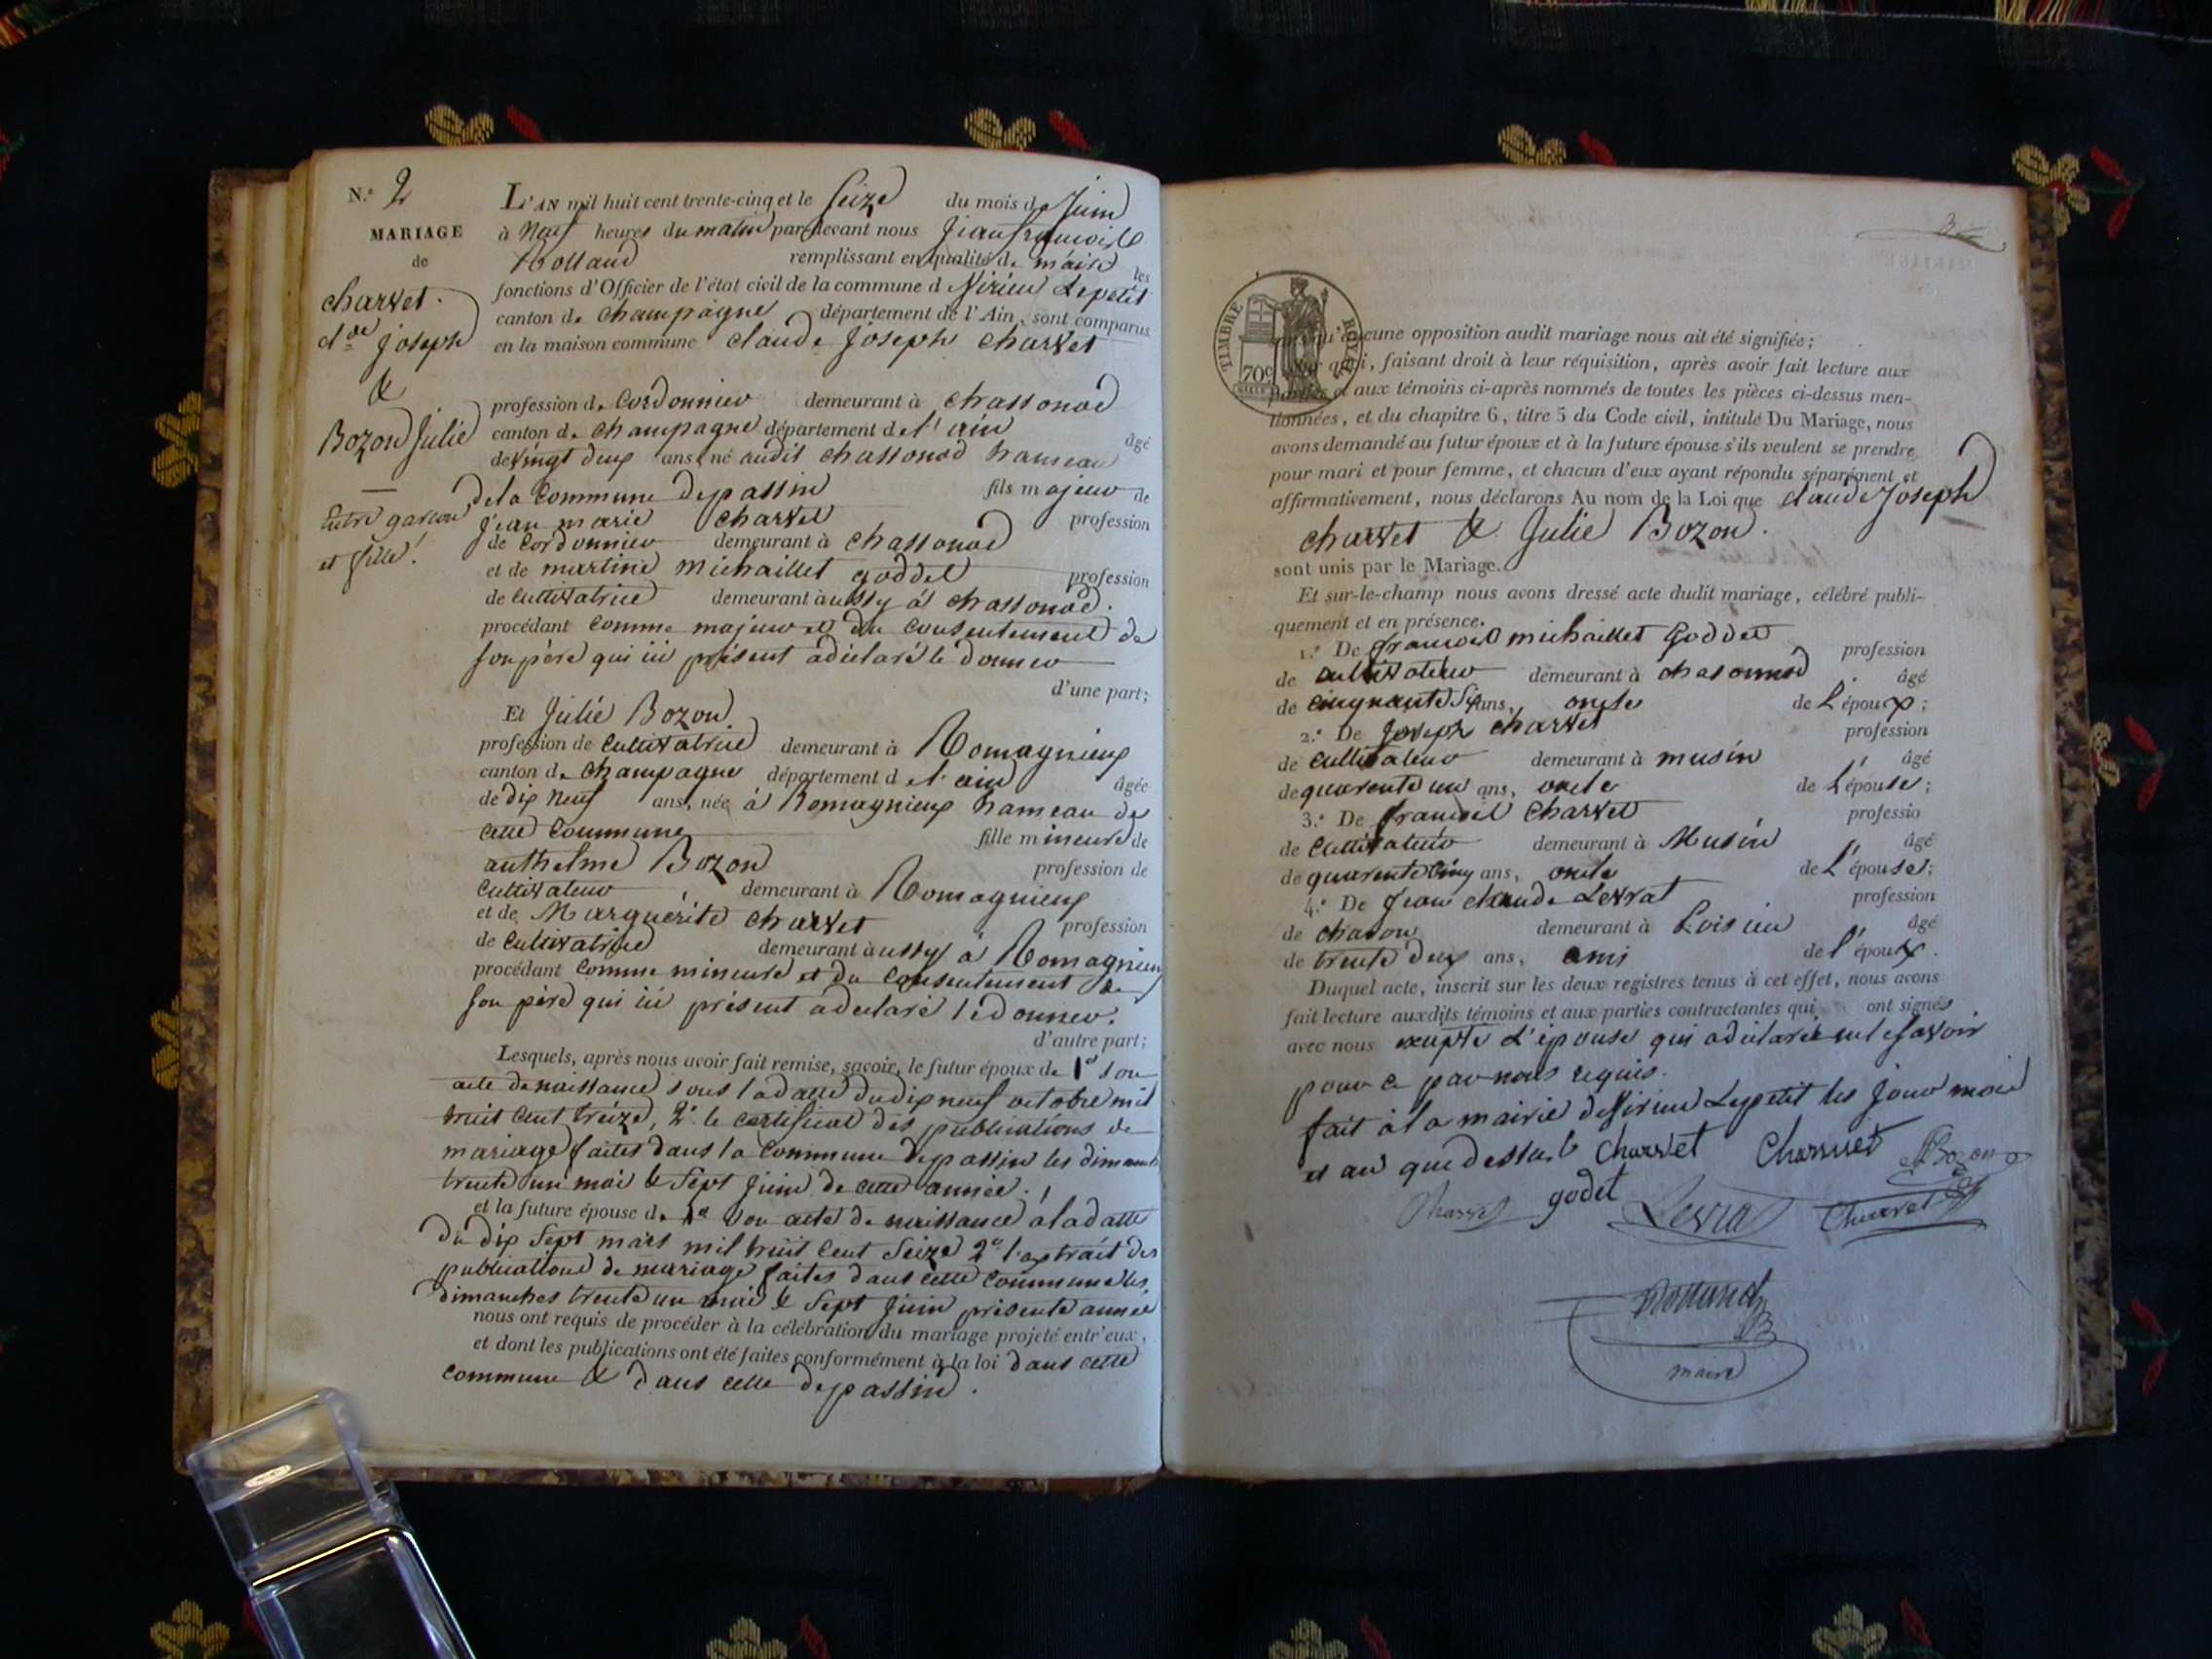 N.º 2
MARIAGE
de
charvet.
cl.de joseph
&
Bozon Julie
—
Entre garcon
et fille.
L'AN mil huit cent trente-cinq et le seize du mois de juin
à neuf heures du matin par-devant nous jean francois
Rolland remplissant en qualité de maire les
fonctions d'Officier de l'état civil de la commune d Virieu Lepetit
canton de champagne département de l'Ain, sont comparus
en la maison commune claude joseph charvet
profession de Cordonnier demeurant à chassonod
canton de champagne département de l'ain âgé
de vingt deux ans, né audit chassonod hameau
dela Commune depassin fils majeur de
jean marie charvet profession
de Cordonnier demeurant à chassonod
et de martine michaillet goddet profession
de Cultivatrice demeurant aussy à chassonod.
procédant comme majeur et du consentement de
son père qui ici présent adéclaré le donner
d'une part;
Et julie Bozon
profession de Cultivatrice demeurant à Romagnieux
canton de champagne département de l'ain âgée
de dix neuf ans, née à Romagnieux hameau de
cette commune fille mineure de
anthelme Bozon profession de
Cultivateur demeurant à Romagnieux
et de Marguérite charvet profession
de Cultivatrice demeurant aussy à Romagnieux
procédant comme mineure et du consentement de
son père qui ici présent adeclaré le donner.
d'autre part;
Lesquels, après nous avoir fait remise, savoir, le futur époux de 1º son
acte denaissance sous ladatte dudix neuf octobre mil
huit cent treize, 2º le certificat des publications de
mariage faites dans la commune depassin les dimanches
trente un mai & sept juin de cette année.
et la future épouse de 1º son acte de naissance àladatte
du dix sept mars mil huit cent seize 2º l'extrait des
publications de mariage faites dans cette commune les
dimanches trente un mai & sept juin présente année
nous ont requis de procéder à la célébration du mariage projeté entr'eux,
et dont les publications ont été faites conformément à la loi dans cette
commune & dans celle depassin.
TIMBRE ROYAL
70c
qu'aucune opposition audit mariage nous ait été signifiée;
quoi, faisant droit à leur réquisition, après avoir fait lecture aux
parties et aux témoins ci-après nommés de toutes les pièces ci-dessus men-
tionnées, et du chapitre 6, titre 5 du Code civil, intitulé Du Mariage, nous
avons demandé au futur époux et à la future épouse s'ils veulent se prendre
pour mari et pour femme, et chacun d'eux ayant répondu séparément et
affirmativement, nous déclarons Au nom de la Loi que claude joseph
charvet & Julie Bozon.
sont unis par le Mariage.
Et sur-le-champ nous avons dressé acte dudit mariage, célébré publi-
quement et en présence.
1.º De francois michaillet goddet profession
de cultivateur demeurant à chasonnod âgé
de cinquante six ans, oncle de l'époux;
2.º De joseph charvet profession
de cultivateur demeurant à musin âgé
de quarente un ans, oncle de l'épouse;
3.º De francois charvet professio
de Cultivateur demeurant à Musin âgé
de quarente cinq ans, oncle de l'épouse;
4.º De jean claude Levrat profession
de charon demeurant à Loisieu âgé
de trente deux ans, ami de l'époux.
Duquel acte, inscrit sur les deux registres tenus à cet effet, nous avons
fait lecture auxdits témoins et aux parties contractantes qui ont signés
avec nous excepté l'épouse qui adéclaré nele savoir
pour ce par nous requis.
fait àla mairie de Virieu Lepetit les jour mois
et an que dessus. charvet Charvet Bozon
Charvet godet Levrat Charvet
Rolland
maire